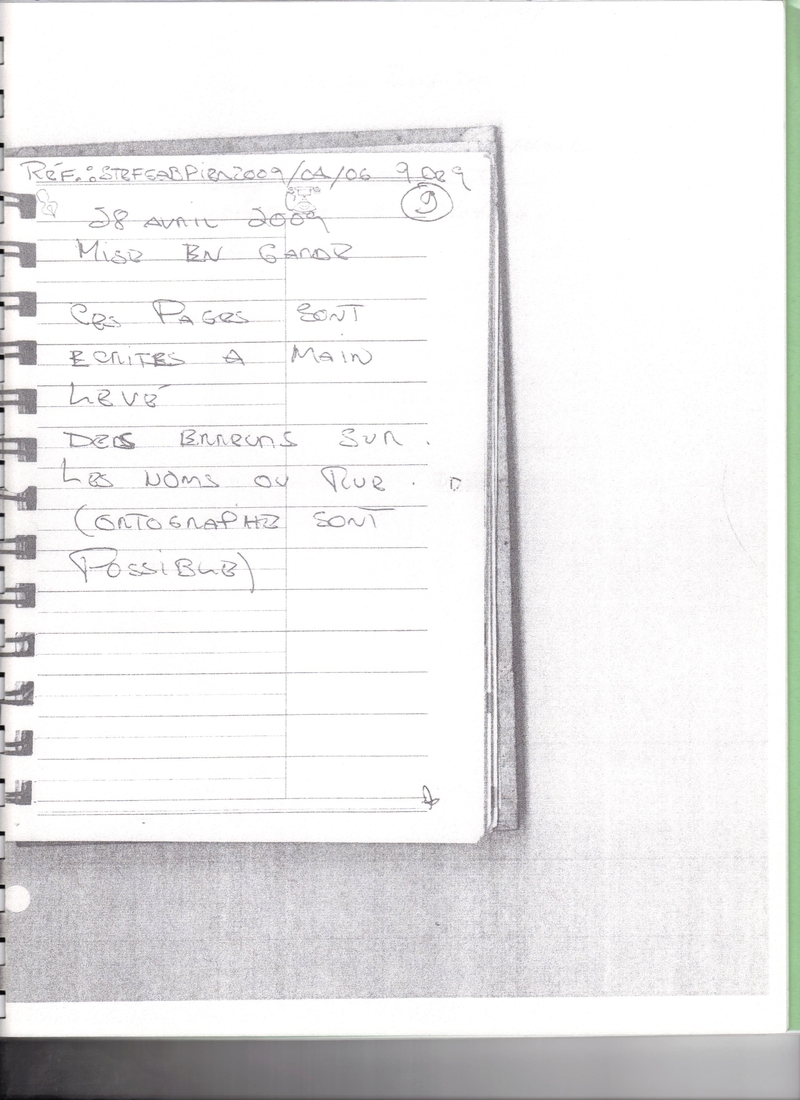 RÉF.: STRFGABPIRN2009/04/06 9 DE 9
9
28 AVRIL 2009
MISE EN GARDE
CES PAGES SONT
ECRITES A MAIN
LEVÉ
DES ERREURS SUR.
LES NOMS OU RUE.
(ORTOGRAPHE SONT
POSSIBLE)